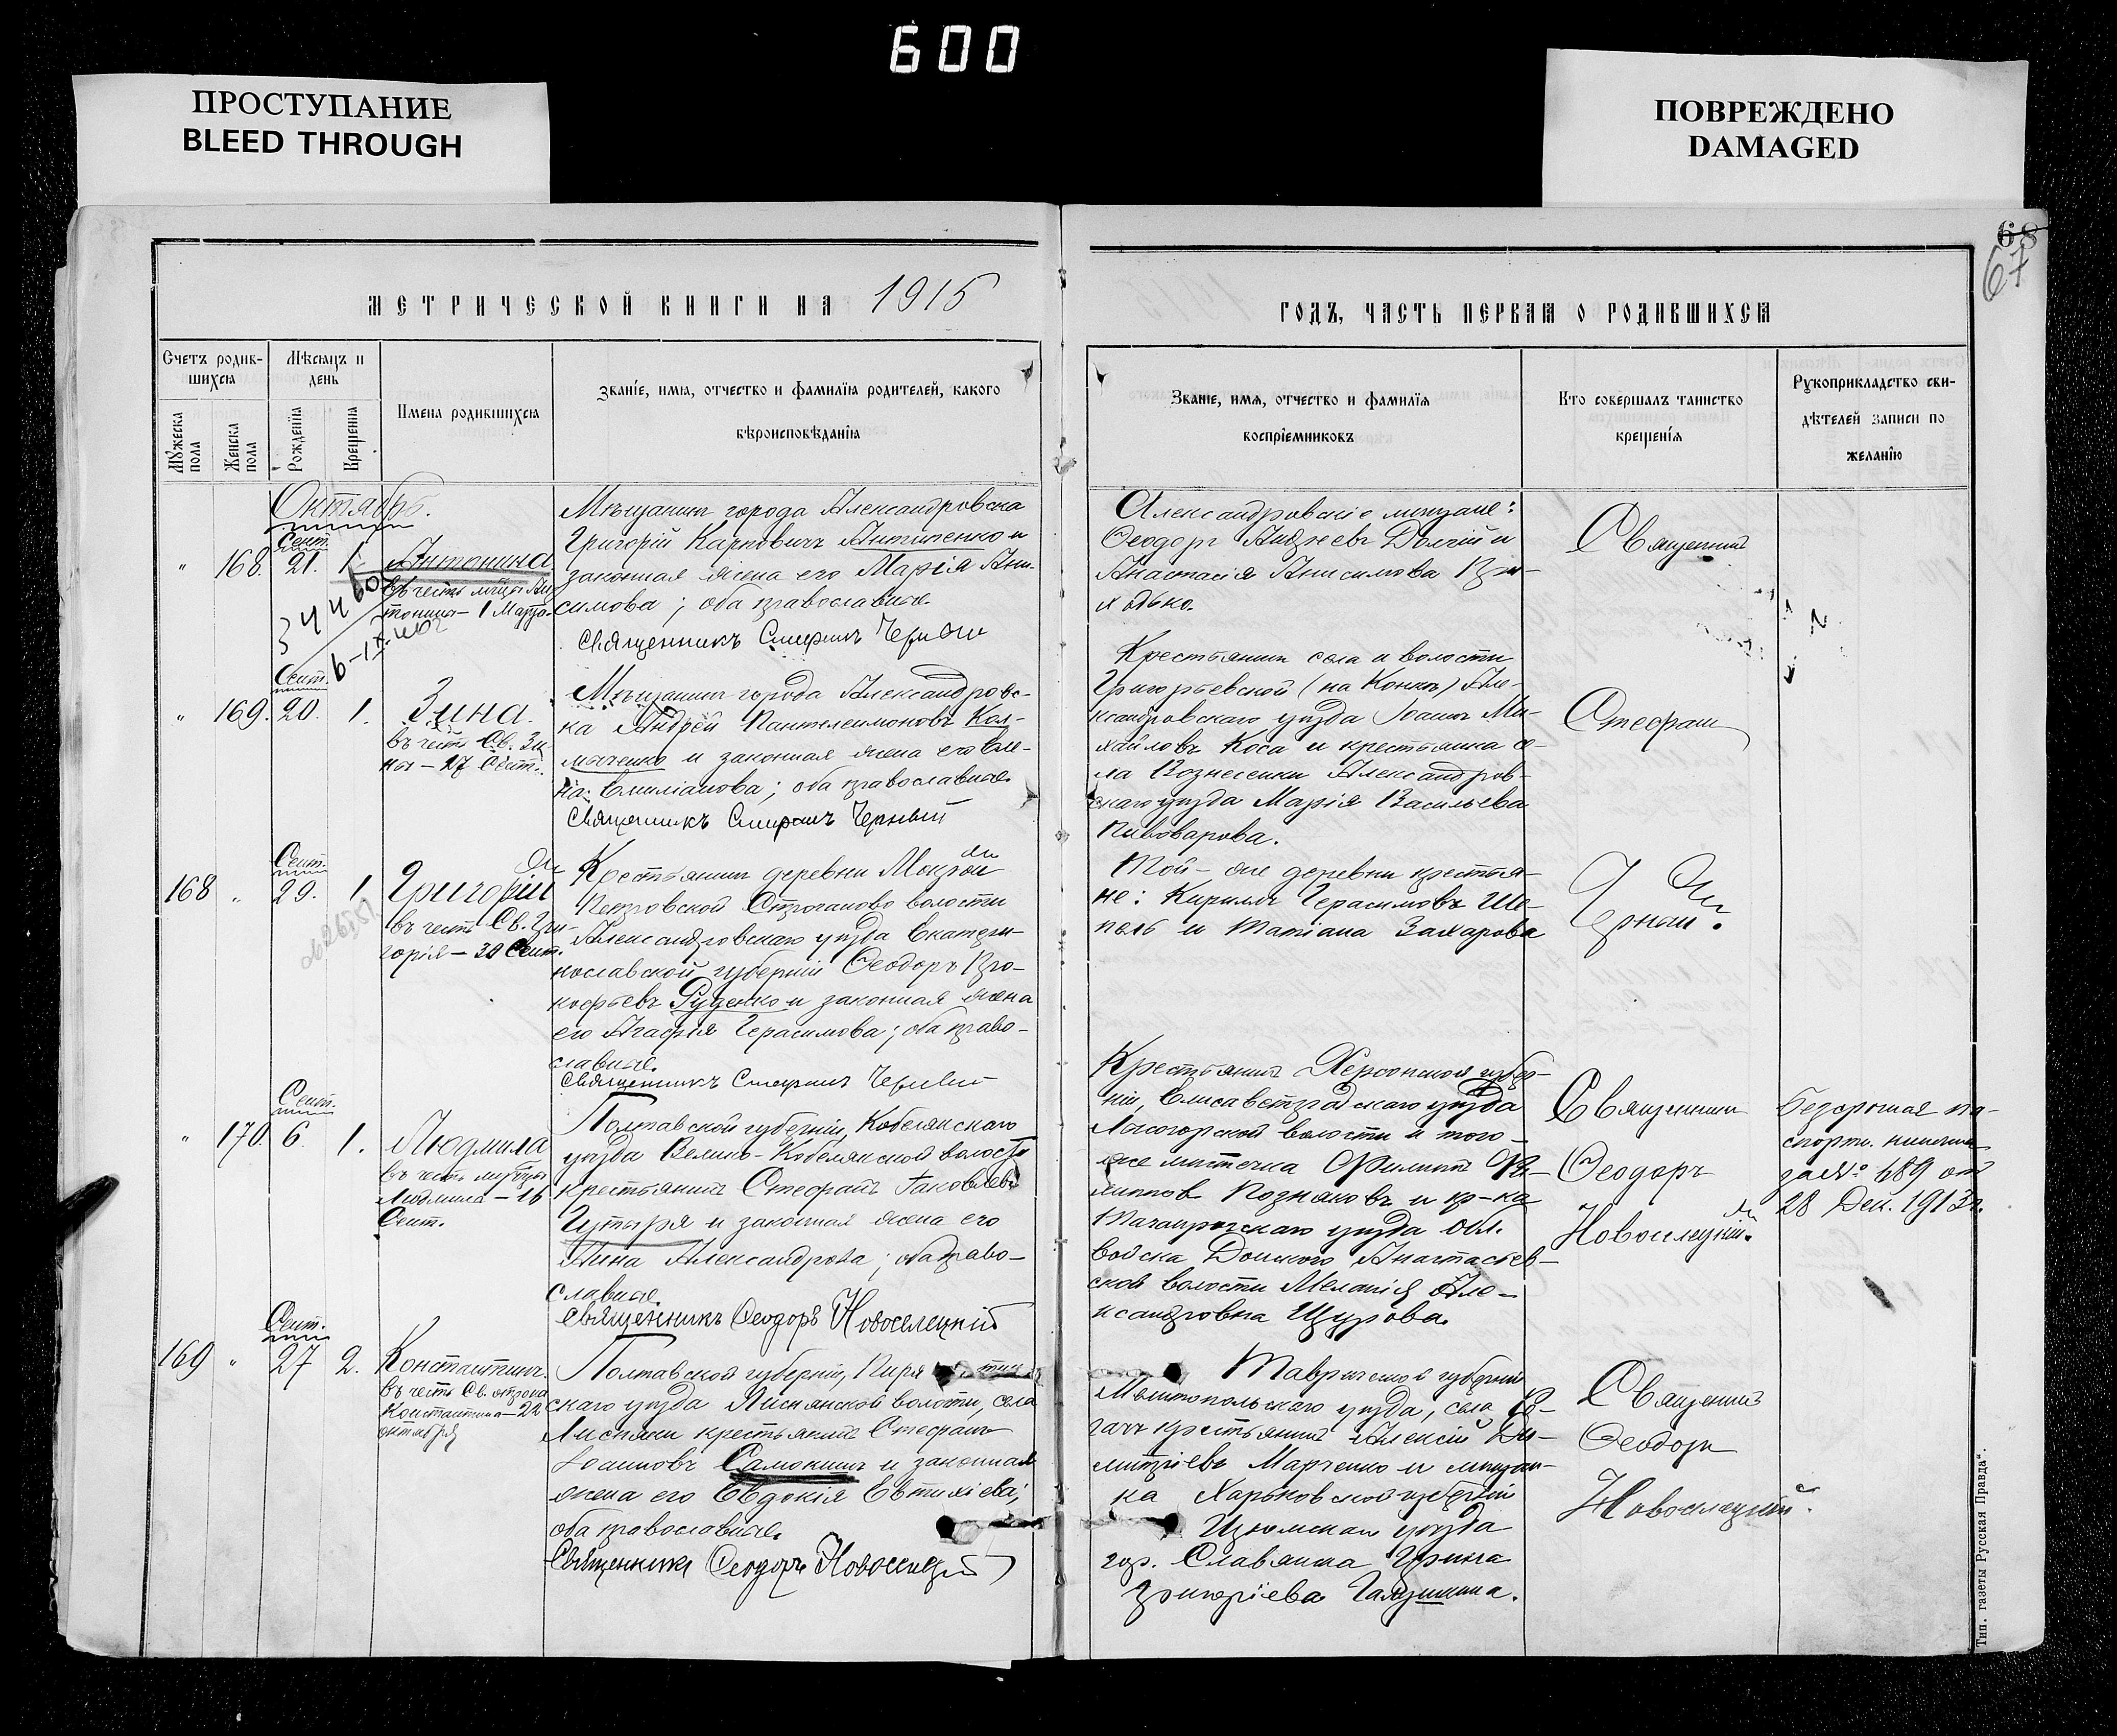 600
ПРОСТУПАНИЕ
BLEED THROUGH
ПОВРЕЖДЕНО
DAMAGED
68
67
МЕТРИЧЕСКОЙ КНИГИ НА 1915
ГОДЪ, ЧАСТЬ ПЕРВАЯ О РОДИВШИХСЯ
Счетъ родив-
шихся
Мѣсяцъ и
день
Мужеска
пола
Женска
пола
Рожденія
Крещенія
Имена родившихся
Званіе, имя, отчество и фамилія родителей, какого
вѣроисповѣданія
Званіе, имя, отчество и фамилія
воспріемниковъ
Кто совершалъ таинство
крещенія
Рукоприкладство сви-
дѣтелей записи по
желанію
Октябрь.
Сент.
" 168. 21. 1. Антонина
въ честь мцы Ан-
тонины - 1 Марта.
Мѣщанинъ города Александровска
Григорій Карповичъ Антипенко и
законная жена его Марія Ани-
симова; оба православные.
Священникъ Стефанъ Черный
Александровскіе мещане:
Ѳеодоръ Андреевъ Долгій и
Анастасія Анисимова При-
ходько.
Священникъ
Сент.
" 169. 20. 1. Зина.
въ честь Св. Зи-
ны - 27 Сент.
Мѣщанинъ города Александровс-
ка Андрей Пантелеимоновъ Кол-
маченко и законная жена его Еле-
на Емиліанова; оба православные.
Священникъ Стефанъ Черный
Крестьянинъ села и волости
Григорьевской (на Конкѣ) Але-
ксандровскаго уѣзда Іоаннъ Ми-
хайловъ Коса и крестьянка се-
ла Вознесенки Александров-
скаго уѣзда Марія Васильева
Пивоварова.
Стефанъ
Сент.
168 " 29. 1. Григорій
въ честь Св. Гри-
горія - 30 Сент.
Крестьянинъ деревни Мокрой
Петровской Строганово волости
Александровскаго уѣзда Екатери-
нославской губерніи Ѳеодоръ Про-
кофьевъ Руденко и законная жена
его Агафія Герасимова; оба право-
славные.
Священникъ Стефанъ Черный
Той-же деревни крестья-
не: Кириллъ Герасимовъ Ше-
пель и Татіана Захарова
Черный.
Сент.
" 170. 6. 1. Людмила
въ честь мученицы
Людмила - 16
Сент.
Полтавской губерніи, Кобелякскаго
уѣзда Велико-Кобелякской волости
крестьянинъ Стефанъ Іаковлевъ
Чутыря и законная жена его
Анна Александрова; оба право-
славные.
Священникъ Ѳеодоръ Новоселецкій
Крестьянинъ Херсонской губер-
ніи, Елисаветградскаго уѣзда
Лысогорской волости и того-
же мѣстечка Филиппъ Фи-
липповъ Позняковъ и кр-ка
Таганрогскаго уѣзда Обл.
Войска Донскаго Анастасьев-
ской волости Меланія Але-
ксандровна Щурова.
Священникъ
Ѳеодоръ
Новоселецкій.
Безсрочная па-
спортн. книжка
за № 689 от
28 Дек. 1913 г.
Сент.
169 " 27 2. Константинъ.
въ честь Св. отрока
Константина - 22
октября
Полтавской губерніи, Пирятин-
скаго уѣзда Лиснянской волости, села
Лисняки крестьянинъ Стефанъ
Іоанновъ Самокишъ и законная
жена его Евдокія Евтихіева;
оба православные.
Священникъ Ѳеодоръ Новоселецкій
Таврической губерніи
Мелитопольскаго уѣзда, села Ро-
гачъ крестьянинъ Алексій Ди-
митріевъ Марченко и мещан-
ка Харьковской губерніи
Изюмскаго уѣзда
гор. Славянска Ирина
Григоріева Галушкина.
Священникъ
Ѳеодоръ
Новоселецкій.
Тип. газеты „Русская Правда".